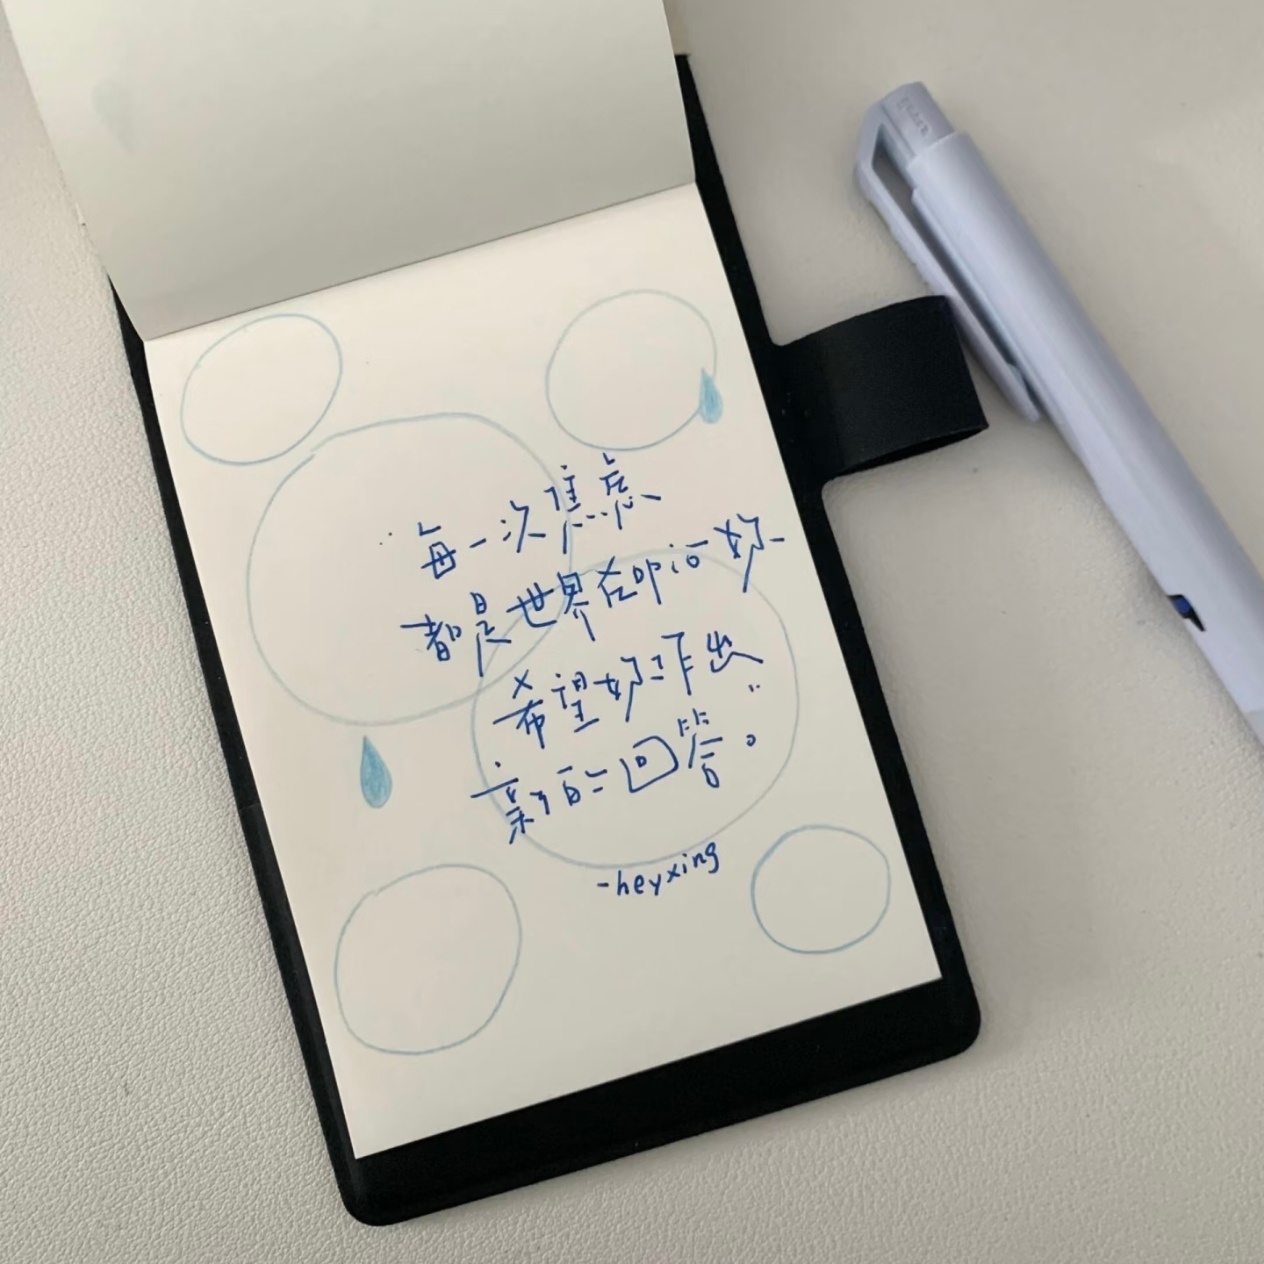 每一次焦虑
都是世界在叩问你
希望你作出
新的回答。
-heyxing